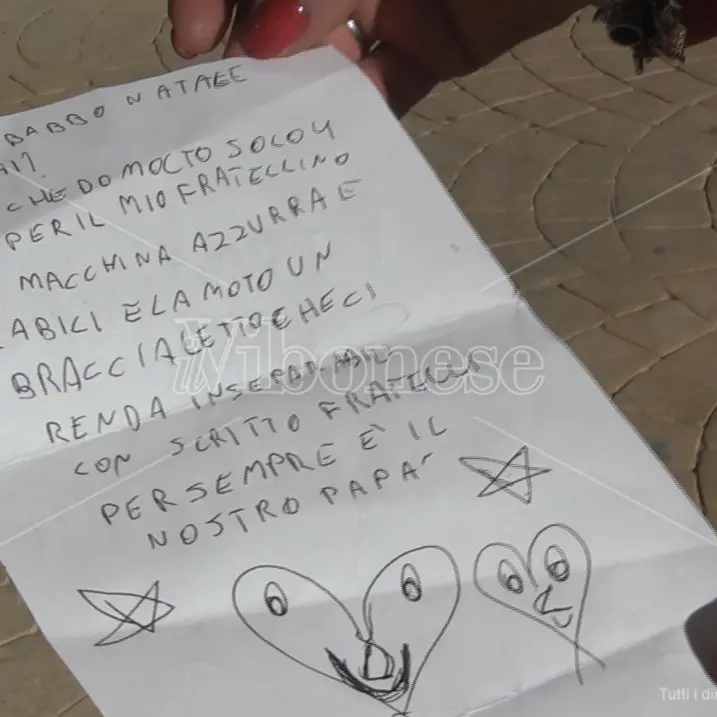 BABBO NATALE
CHE DO MOLTO SOLO
PER IL MIO FRATELLINO
MACCHINA AZZURRA E
LABICI E LA MOTO UN
BRACCIALETTO CHE CI
RENDA INSEPARABILI
CON SCRITTO FRATELLI
PER SEMPRE E' IL
NOSTRO PAPA'
Il Vibonese
Tutti i di